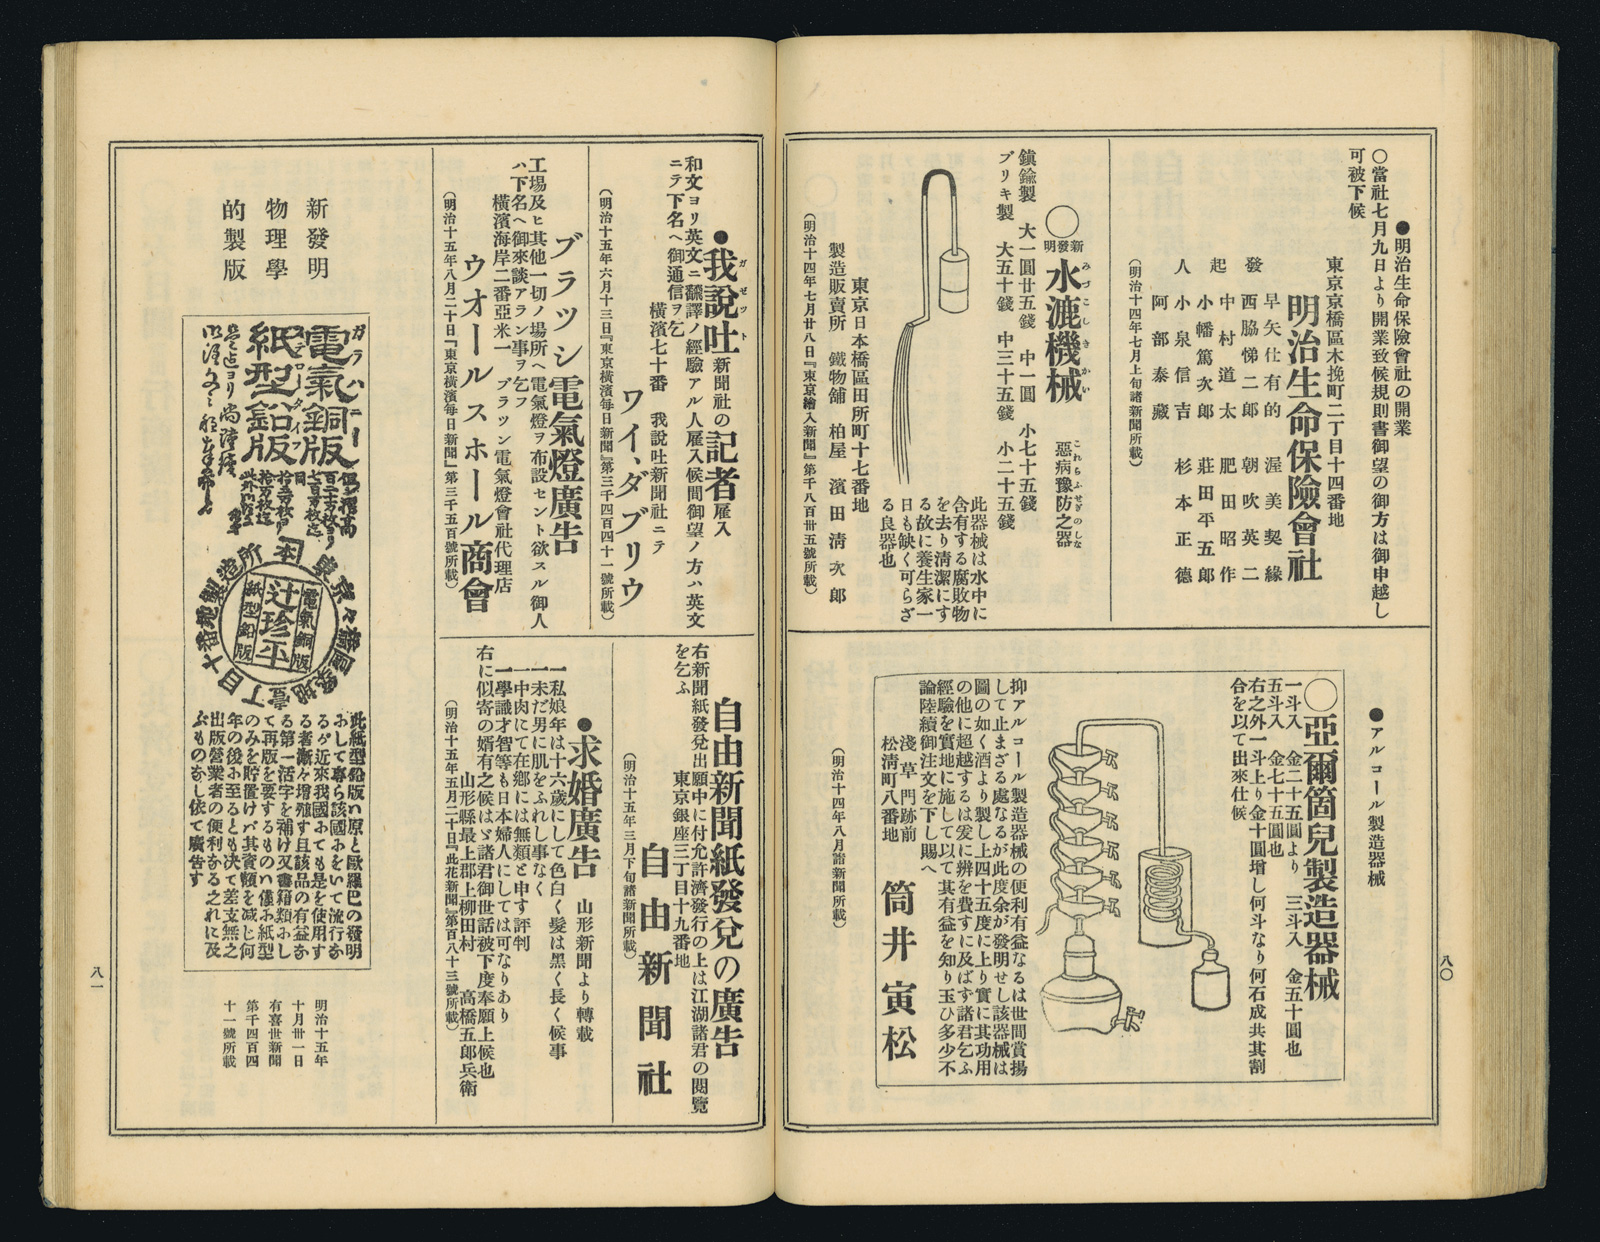 ●明治生命保險會社の開業
○當社七月九日より開業致候規則書御望の御方は御申越し
可被下候
東京京橋區木挽町二丁目十四番地
明治生命保險會社
發起人
早矢仕有的　渥美契緣
西脇悌二郎　朝吹英二
中村道太　肥田昭作
小幡篤次郎　莊田平五郎
小泉信吉　杉本正德
阿部泰藏
（明治十四年七月上旬諸新聞所載）
○新發明　水漉機械　惡病豫防之器
みづこしきかい
これらふせぎのしな
鎭鍮製　大一圓廿五錢　中一圓　小七十五錢
ブリキ製　大五十錢　中三十五錢　小二十五錢
此器械は水中に
含有する腐敗物
を去り淸潔にす
る故に養生家一
日も缺く可らざ
る良器也
東京日本橋區田所町十七番地
製造販賣所　鐵物舖　柏屋　濱田淸次郎
（明治十四年七月廿八日『東京繪入新聞』第千八百卅五號所載）
●アルコール製造器械
○亞爾箇兒製造器械
一斗入　金二十五圓より　三斗入　金五十圓也
五斗入　金七十五圓也
右之外一斗上り金十圓增し何斗なり何石成共其割
合を以て出來仕候
抑アルコール製造器械の便利有益なるは世間賞揚
して止まざる處なるが此度余が發明せし該器械は
圖の如く酒より製し上四十五度に上り實に其功用
の他に超越するは爰に辨を費すに及ばず諸君乞ふ
經驗を實地に施して以て其有益を知り玉ひ多少不
論陸續御注文を下し賜へ
淺草門跡前
松淸町八番地　筒井寅松
（明治十四年八月諸新聞所載）
八〇
●我說吐新聞社の記者雇入
ガゼット
和文ヨリ英文ニ飜譯ノ經驗アル人雇入候間御望ノ方ハ英文
ニテ下名ヘ御通信ヲ乞
橫濱七十番　我說吐新聞社ニテ
ワイ、ダブリウ
（明治十五年六月十三日『東京橫濱每日新聞』第三千四百四十一號所載）
ブラッシ電氣燈廣告
工場及ヒ其他一切ノ場所ヘ電氣燈ヲ布設セント欲スル御人
ハ下名ヘ御來談アラン事ヲ乞フ
橫濱海岸二番亞米一　ブラッシ電氣燈會社代理店
ウオールスホール商會
（明治十五年八月二十日『東京橫濱每日新聞』第三千五百號所載）
自由新聞紙發兌の廣告
右新聞紙發兌出願中に付允許濟發行の上は江湖諸君の閱覽
を乞ふ
東京銀座三丁目十九番地
自由新聞社
（明治十五年三月下旬諸新聞所載）
●求婚廣告　山形新聞より轉載
一私娘年は十六歲にして色白く髮は黑く長く候事
一未だ男に肌をふれし事なく
一中肉にて在鄕には無類と申す評判
一學識才智等も日本婦人にしては可なりあり
右に似寄の婿有之候はゞ諸君御世話被下度奉願上候也
山形縣最上郡上柳田村　高橋五郎兵衛
（明治十五年五月二十日『此花新聞』第百八十三號所載）
新發明
物理學
的製版
ガラハニー
電氣銅版
ステロータイフ
紙型鉛版
東京々橋區築地壹丁目十番地製造所
本
電氣銅版
辻珍平
紙型鉛版
此紙型鉛版ハ原と歐羅巴の發明
おして專ら該國おをいて流行お
るゟ近來我國おても是を使用す
る者漸々增殖す且該品の有益お
る第一活字を補け又書籍類おし
て再版を要するものハ僅ふ紙型
のみを貯置けバ其資額を减じ何
年の後お至るとも决て差支無之
出版營業者の便利おる之れに及
ぶものおし依て廣告す
明治十五年
十月卅一日
有喜世新聞
第千四百四
十一號所載
八一